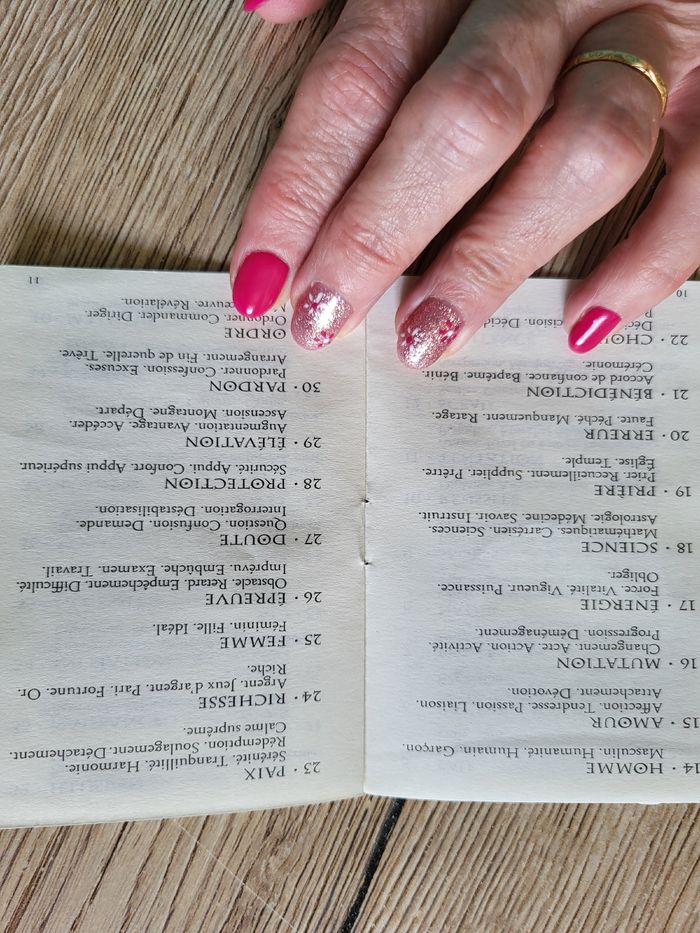 14 · HOMME
Masculin. Humanité. Humain. Garçon.
15 · AMOUR
Affection. Tendresse. Passion. Liaison.
Attachement. Dévotion.
16 · MUTATION
Changement. Acte. Action. Activité.
Progression. Déménagement.
17 · ÉNERGIE
Force. Vitalité. Vigueur. Puissance.
Obliger.
18 · SCIENCE
Mathématiques. Cartésien. Sciences.
Astrologie. Médecine. Savoir. Instruit.
19 · PRIÈRE
Prier. Recueillement. Supplier. Prêtre.
Église. Temple.
20 · ERREUR
Faute. Péché. Manquement. Ratage.
21 · BÉNÉDICTION
Accord de confiance. Baptême. Bénir.
Cérémonie.
22 ·
10
23 · PAIX
Sérénité. Tranquillité. Harmonie.
Rédemption. Soulagement. Détachement.
Calme suprême.
24 · RICHESSE
Argent. Jeux d'argent. Pari. Fortune. Or.
Riche.
25 · FEMME
Féminin. Fille. Idéal.
26 · ÉPREUVE
Obstacle. Retard. Empêchement. Difficulté.
Imprévu. Embûche. Examen. Travail.
27 · DOUTE
Question. Confusion. Demande.
Interrogation. Déstabilisation.
28 · PROTECTION
Sécurité. Appui. Confort. Appui supérieur.
29 · ÉLÉVATION
Augmentation. Avantage. Accéder.
Ascension. Montagne. Départ.
30 · PARDON
Pardonner. Confession. Excuses.
Arrangement. Fin de querelle. Trêve.
ORDRE
Ordonner. Commander. Diriger.
œuvre. Révélation.
11